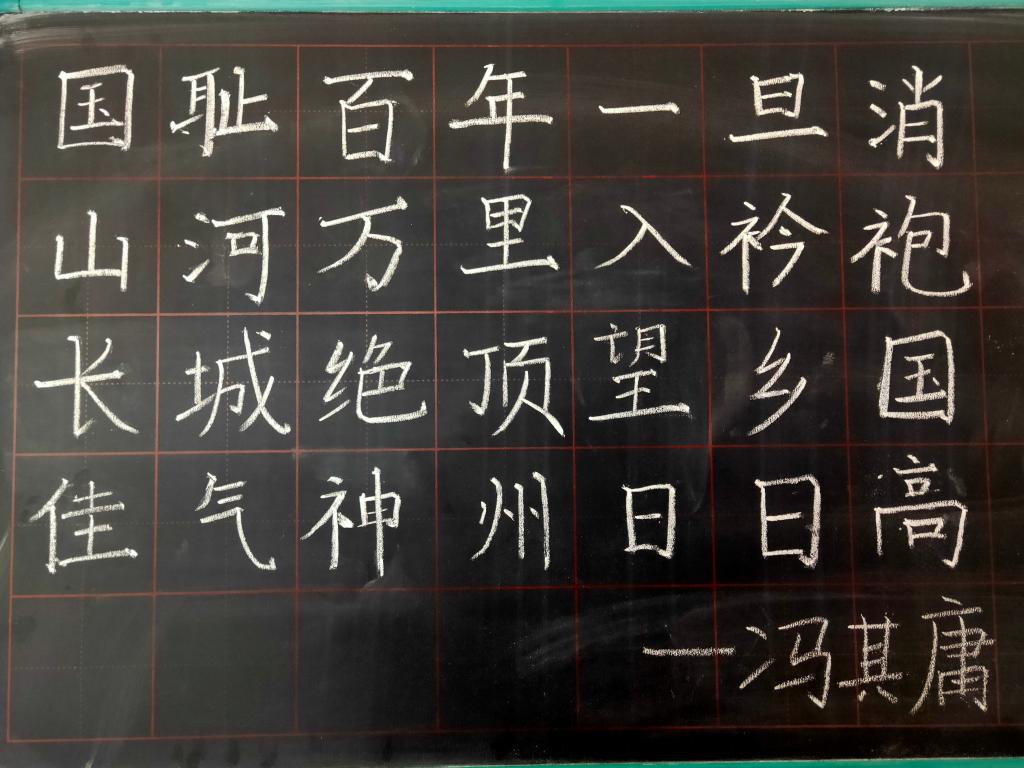 国耻百年一旦消
山河万里入衿袍
长城绝顶望乡国
佳气神州日日高
一冯其庸